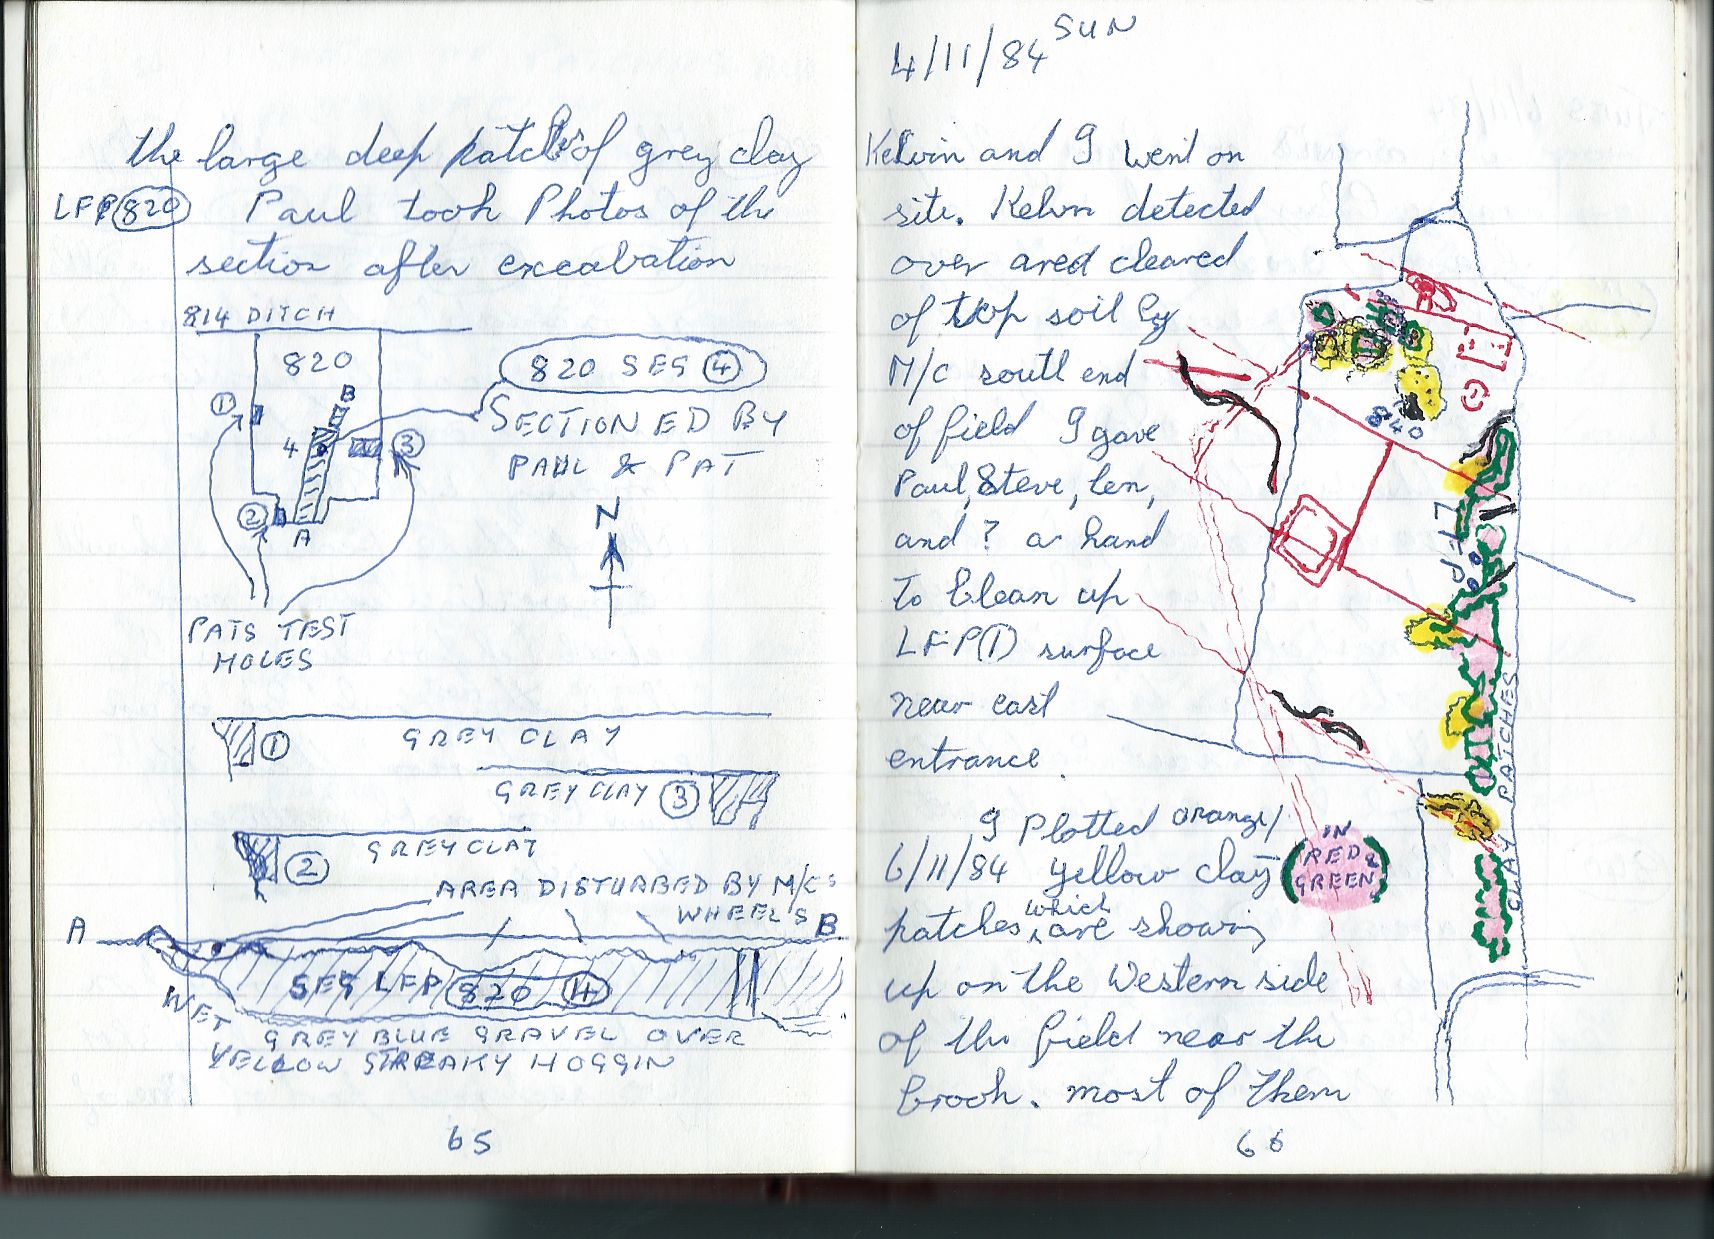 the large deep patches of grey clay
LFP 820 Paul took Photos of the
section after excabation
814 DITCH
820
B
1
4
3
2
A
820 SEG 4
SECTIONED BY
PAUL & PAT
N
PATS TEST
HOLES
1 GREY CLAY
GREY CLAY 3
2 GREY CLAY
AREA DISTURBED BY M/CS
WHEEL'S
A B
SEG LFP 820 4
WET
GREY BLUE GRAVEL OVER
YELLOW STREAKY HOGGIN
65
4/11/84 SUN
Kelvin and I went on
site. Kelvin detected
over area cleared
of top soil by
M/C south end
of field I gave
Paul, Steve, Len,
and ? a hand
to Clean up
LFP(1) surface
near east
entrance.
I Plotted orange/
6/11/84 yellow clay
patches which are showing
up on the Western side
of the field near the
brook. most of them
840
LFP
CLAY PATCHES
IN
RED &
GREEN
66